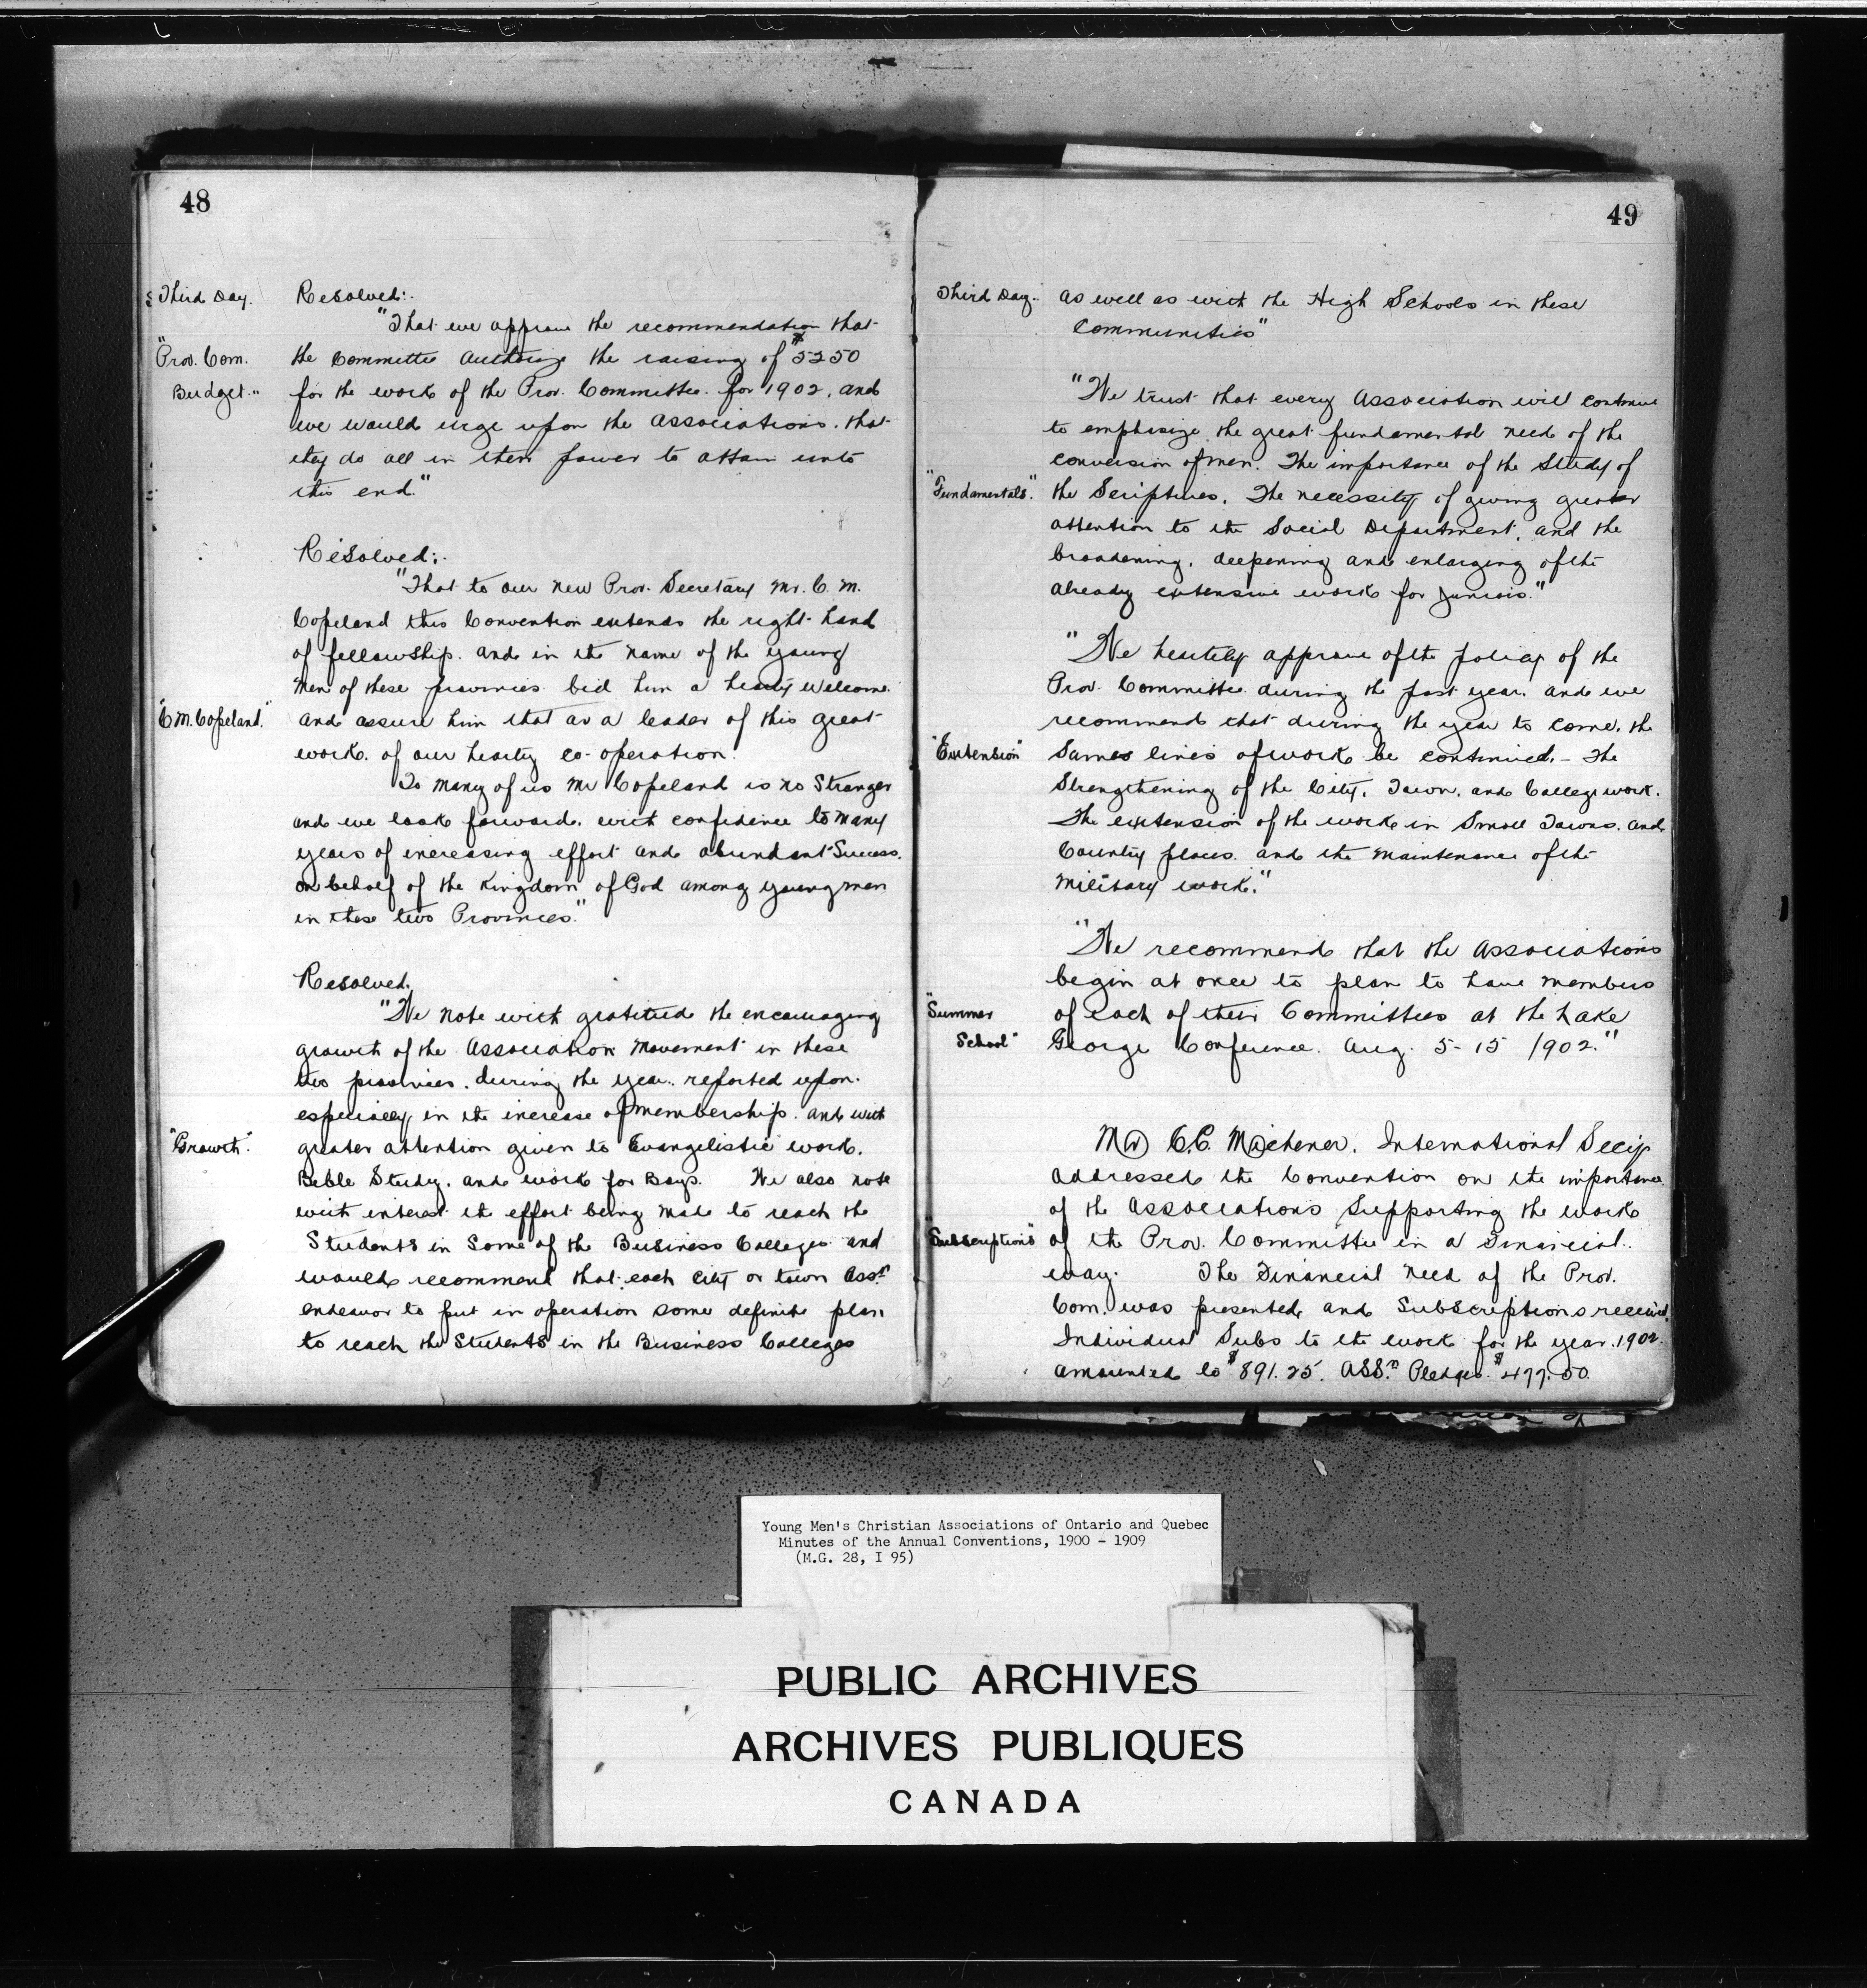 48
Third Day.
Resolved:-
"That we approve the recommendation that
"Prov. Com.
the Committee Authorize the raising of $5250
Budget."
for the work of the Prov. Committee. for 1902. and
we would urge upon the Associations. that
they do all in their power to attain unto
this end."
Resolved:-
"That to our new Prov. Secretary Mr. C. M.
Copeland this Convention extends the right hand
of fellowship. and in the name of the young
men of these provinces bid him a hearty welcome.
"C. M. Copeland."
and assure him that as a leader of this great
work. of our hearty co-operation.
To many of us Mr Copeland is no Stranger
and we look forward. with confidence to many
years of increasing effort and abundant Success.
on behalf of the Kingdom of God among young men
in these two Provinces."
Resolved.
"We note with gratitude the encouraging
growth of the Association Movement in these
two provinces. during the year. reported upon.
especially in the increase of membership. and with
"Growth".
greater attention given to Evangelistic work.
Bible Study. and work for Boys. We also note
with interest the effort being made to reach the
Students in Some of the Business Colleges and
would recommend that each City or town Assn
endeavor to put in operation some definite plan
to reach the Students in the Business Colleges
49
Third Day.
as well as with the High Schools in these
Communities"
"We trust that every Association will continue
to emphisize the great fundamental need of the
conversion of men. The importance of the Study of
"Fundamentals."
the Scriptures. The necessity of giving greater
attention to the Social Department, and the
broadening, deepening and enlarging of the
already extensive work for Juniors."
"We heartily approve of the policy of the
Prov. Committee during the past year. and we
recommend that during the year to come. the
"Extension"
Same lines of work be continued.- The
Strengthening of the City, Town, and College work.
The extension of the work in Small Towns. and
Country places. and the Maintenance of the
Military work."
"We recommend that the Associations
begin at once to plan to have members
"Summer
of each of their Committees at the Lake
School"
George Conference. Aug. 5-15 1902."
Mr C.C. Michener. International Secy
addressed the Convention on the importance
of the Associations Supporting the work
"Subscriptions"
of the Prov. Committee in a Financial
way. The Financial need of the Prov.
Com. was presented and Subscriptions received.
Individual Subs to the work for the year. 1902.
amounted to $891.25. ASSn Pledges. $477.50
Young Men's Christian Associations of Ontario and Quebec
Minutes of the Annual Conventions, 1900 - 1909
(M.G. 28, I 95)
PUBLIC ARCHIVES
ARCHIVES PUBLIQUES
CANADA